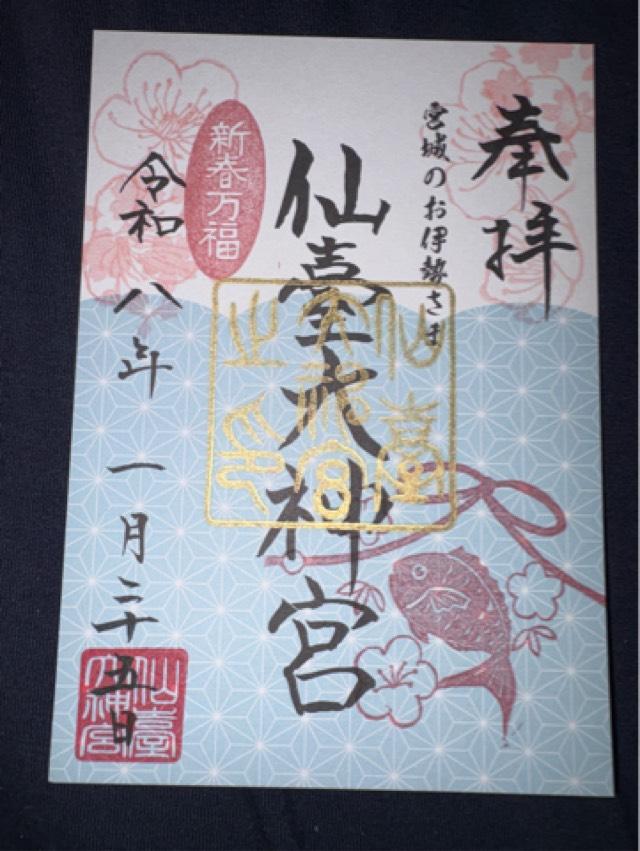 奉拝
宮城のお伊勢さま
仙臺大神宮
仙臺大神宮之印
新春万福
令和八年一月二十五日
仙臺大神宮